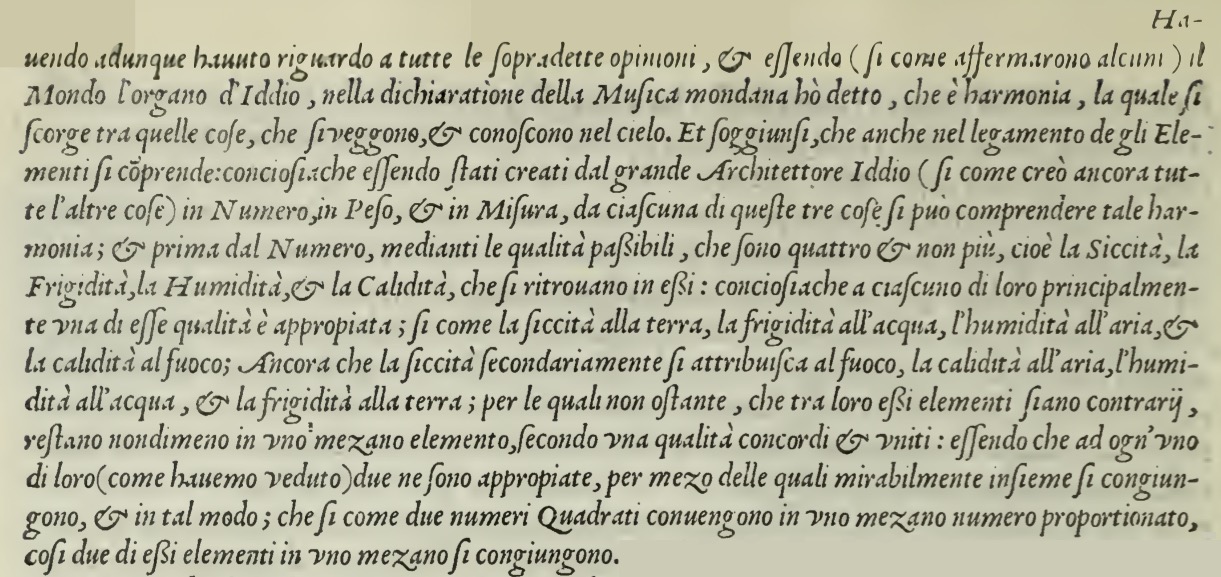 Ha-
uendo adunque hauuto riguardo a tutte le ſopradette opinioni, & eſſendo (ſi come affermarono alcuni) il
Mondo l'organo d'Iddio, nella dichiaratione della Muſica mondana hò detto, che è harmonia, la quale ſi
ſcorge tra quelle coſe, che ſi veggono, & conoſcono nel cielo. Et ſoggiunſi, che anche nel legamento de gli Ele-
menti ſi cōprende: concioſiache eſſendo ſtati creati dal grande Architettore Iddio (ſi come creò ancora tut-
te l'altre coſe) in Numero, in Peſo, & in Miſura, da ciaſcuna di queſte tre coſe ſi può comprendere tale har-
monia; & prima dal Numero, medianti le qualità paßibili, che ſono quattro & non più, cioè la Siccità, la
Frigidità, la Humidità, & la Calidità, che ſi ritrouano in eßi: concioſiache a ciaſcuno di loro principalmen-
te vna di eſſe qualità è appropiata; ſi come la ſiccità alla terra, la frigidità all'acqua, l'humidità all'aria, &
la calidità al fuoco; Ancora che la ſiccità ſecondariamente ſi attribuiſca al fuoco, la calidità all'aria, l'humi-
dità all'acqua, & la frigidità alla terra; per le quali non oſtante, che tra loro eßi elementi ſiano contrarij,
reſtano nondimeno in vno mezano elemento, ſecondo vna qualità concordi & vniti: eſſendo che ad ogn'vno
di loro (come hauemo veduto) due ne ſono appropiate, per mezo delle quali mirabilmente inſieme ſi congiun-
gono, & in tal modo; che ſi come due numeri Quadrati conuengono in vno mezano numero proportionato,
coſi due di eßi elementi in vno mezano ſi congiungono.